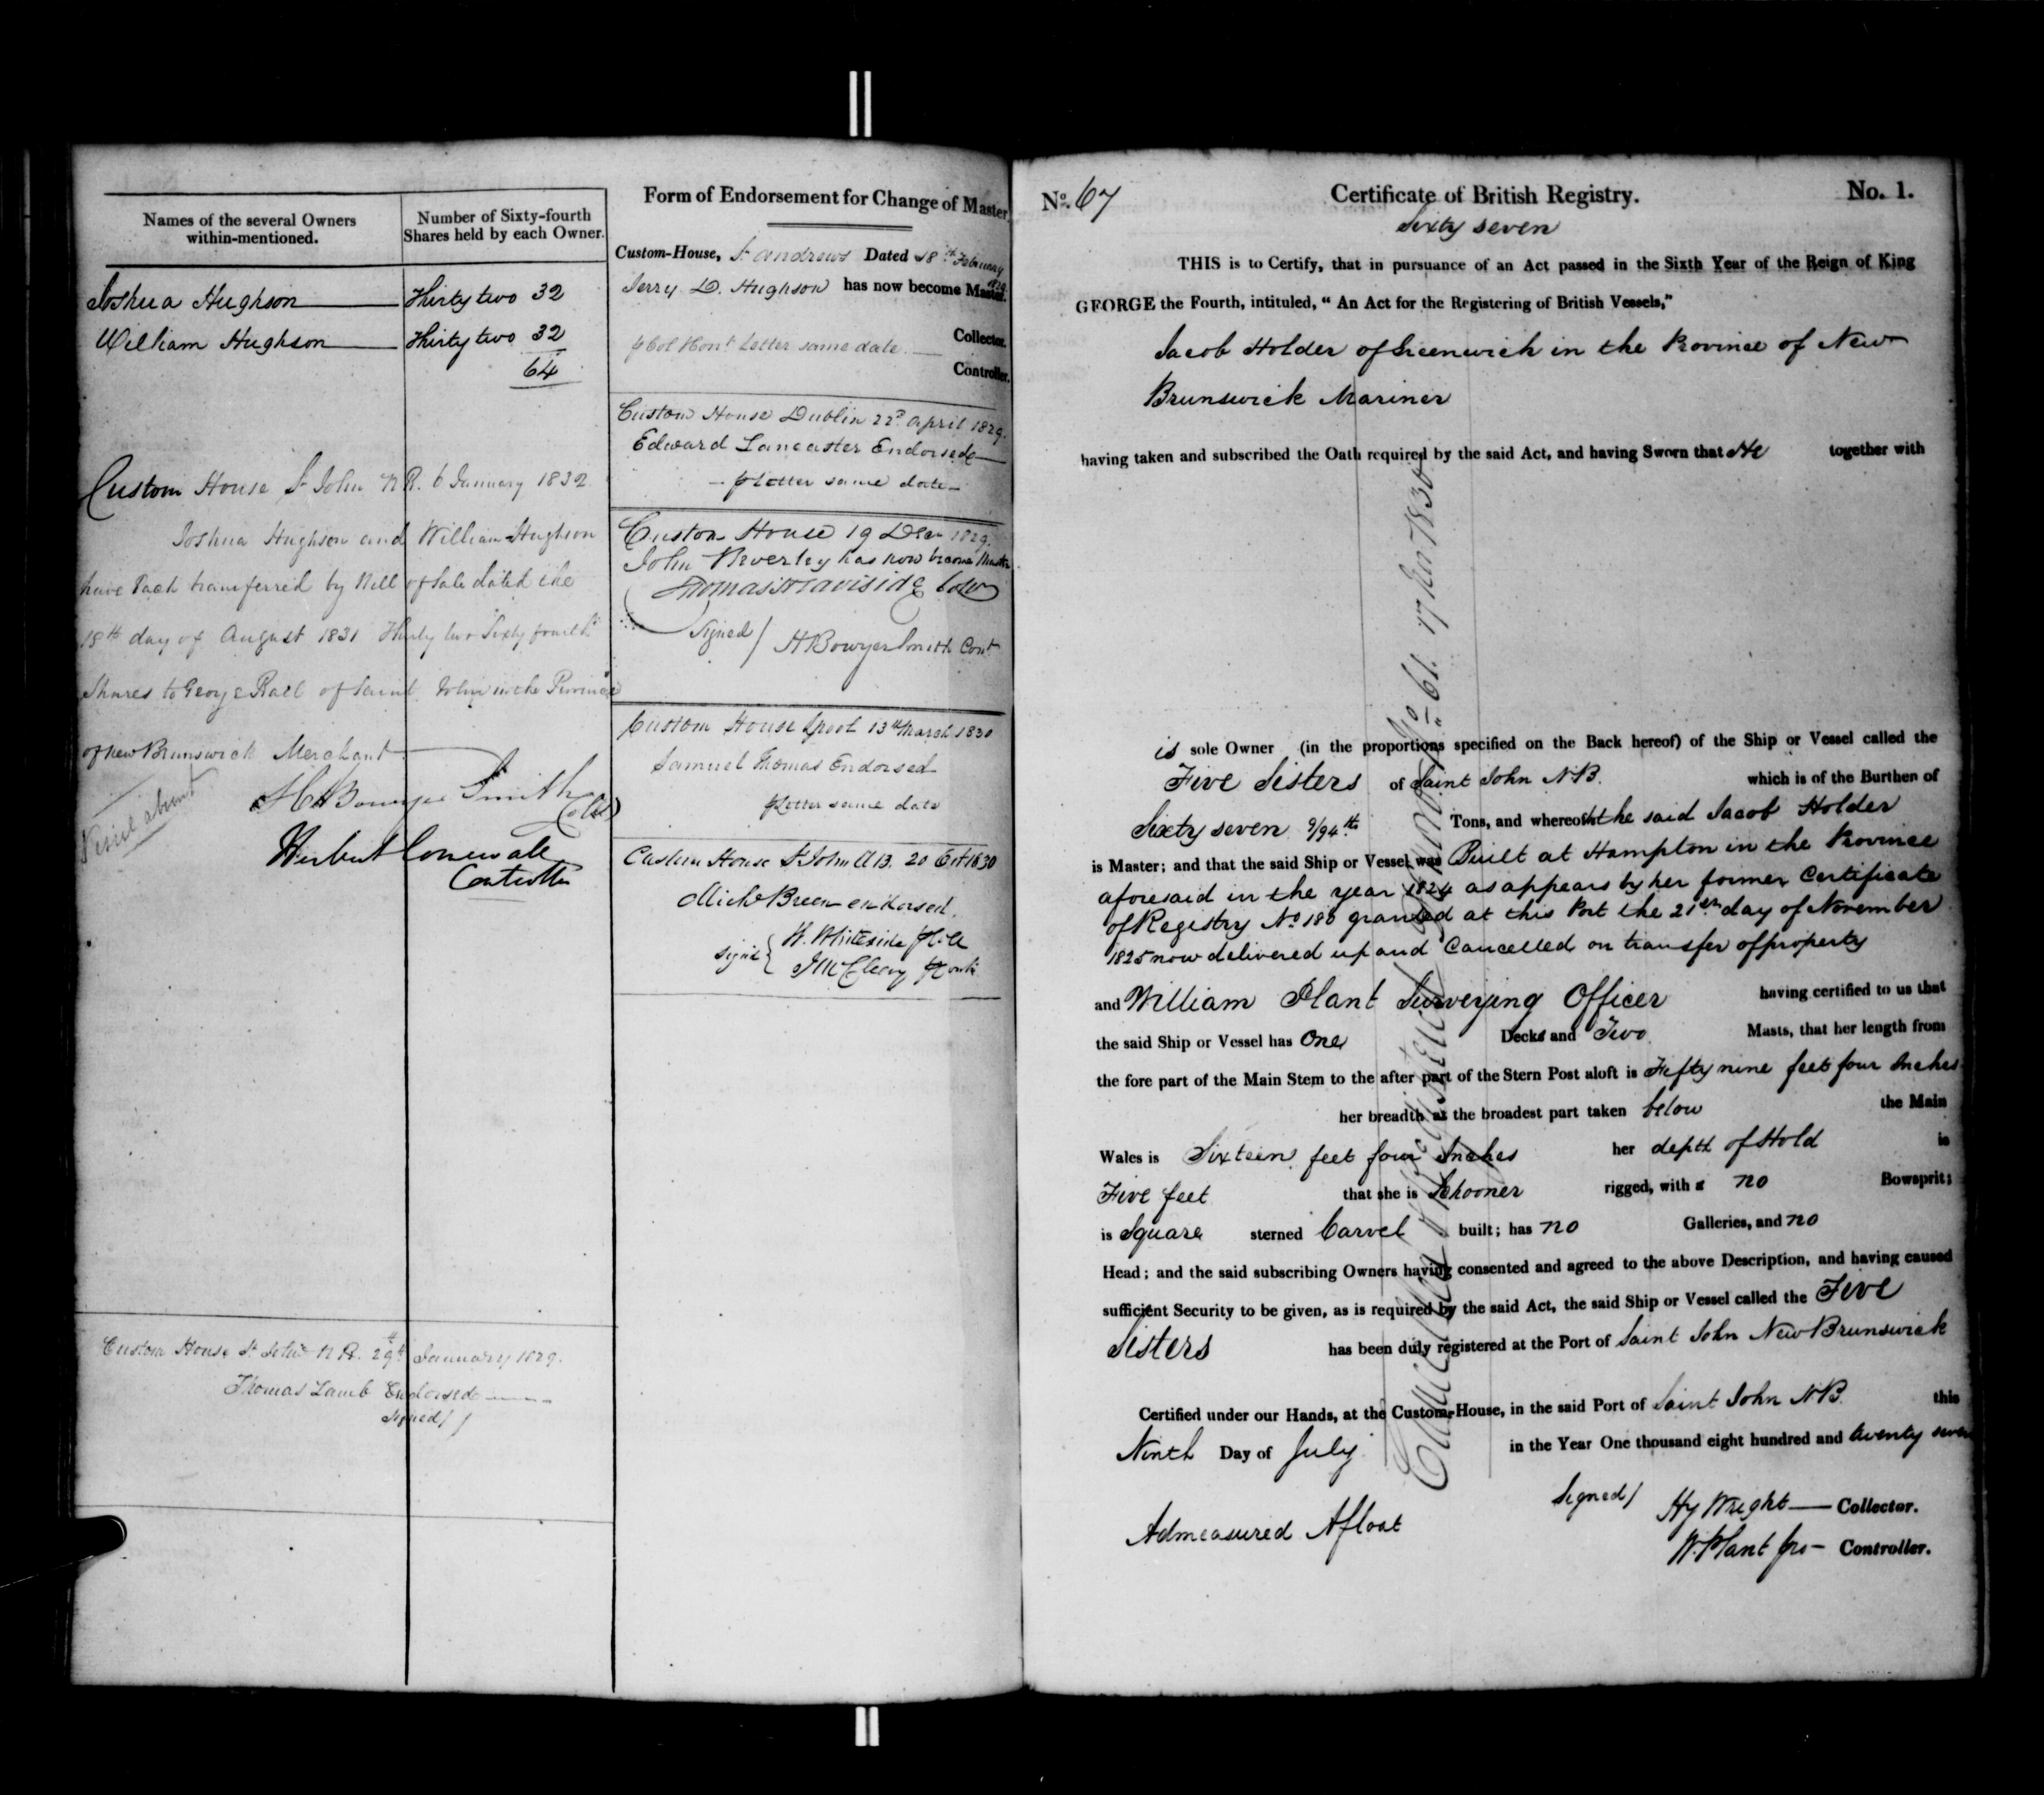 Names of the several Owners
within-mentioned.
Number of Sixty-fourth
Shares held by each Owner.
Joshua Hughson Thirty two 32
William Hughson Thirty two 32
64
Custom House St John N B. 6 January 1832
Joshua Hughson and William Hughson
have Each transferred by Bill of Sale dated the
18th day of August 1831 Thirty two Sixty fourth
Shares to George Ball of Saint John in the Province
of New Brunswick Merchant
Vessel absent
H Bowyer Smith
Collr
Herbert Cornwall
Controller
Custom House St John N B. 29th January 1829.
Thomas Lamb Endorsed
Signed /
Form of Endorsement for Change of Master.
Custom-House, St Andrews Dated 18th February
1829
Jerry D. Hughson has now become Master.
Collector.
p Col Cont Letter same date
Controller.
Custom House Dublin 22d April 1829.
Edward Lancaster Endorsed
p Letter same date
Custom House 19 Decr 1829.
John Beverley has now become Master
Signed / H Bowyer Smith Cont
Custom House Lpool 13th March 1830
Samuel Thomas Endorsed
p Letter same date
Custom House St John N B. 20 Oct 1830
Michl Breen endorsed.
Signd { W. Whiteside
No. 67
Certificate of British Registry.
No. 1.
Sixty seven
THIS is to Certify, that in pursuance of an Act passed in the Sixth Year of the Reign of King
GEORGE the Fourth, intituled, “ An Act for the Registering of British Vessels,”
Jacob Holder of Greenwich in the Province of New
Brunswick Mariner
having taken and subscribed the Oath required by the said Act, and having Sworn that He together with
is sole Owner (in the proportions specified on the Back hereof) of the Ship or Vessel called the
Five Sisters of Saint John N B. which is of the Burthen of
Sixty seven 9/94th Tons, and whereof the said Jacob Holder
is Master; and that the said Ship or Vessel was Built at Hampton in the Province
aforesaid in the year 1824 as appears by her former Certificate
of Registry No 180 granted at this Port the 21st day of November
1825 now delivered up and Cancelled on transfer of property
and William Plant Surveying Officer having certified to us that
the said Ship or Vessel has One Decks and Two Masts, that her length from
the fore part of the Main Stem to the after part of the Stern Post aloft is Fifty nine feet four Inches
her breadth at the broadest part taken below the Main
Wales is Sixteen feet four Inches her depth of Hold is
Five feet that she is Schooner rigged, with a no Bowsprit;
is Square sterned Carvel built; has no Galleries, and no
Head; and the said subscribing Owners having consented and agreed to the above Description, and having caused
sufficient Security to be given, as is required by the said Act, the said Ship or Vessel called the Five
Sisters has been duly registered at the Port of Saint John New Brunswick
Certified under our Hands, at the Custom-House, in the said Port of Saint John N B. this
Ninth Day of July in the Year One thousand eight hundred and twenty seven
Signed / Hy Wright Collector.
Admeasured Afloat
W. Plant Controller.